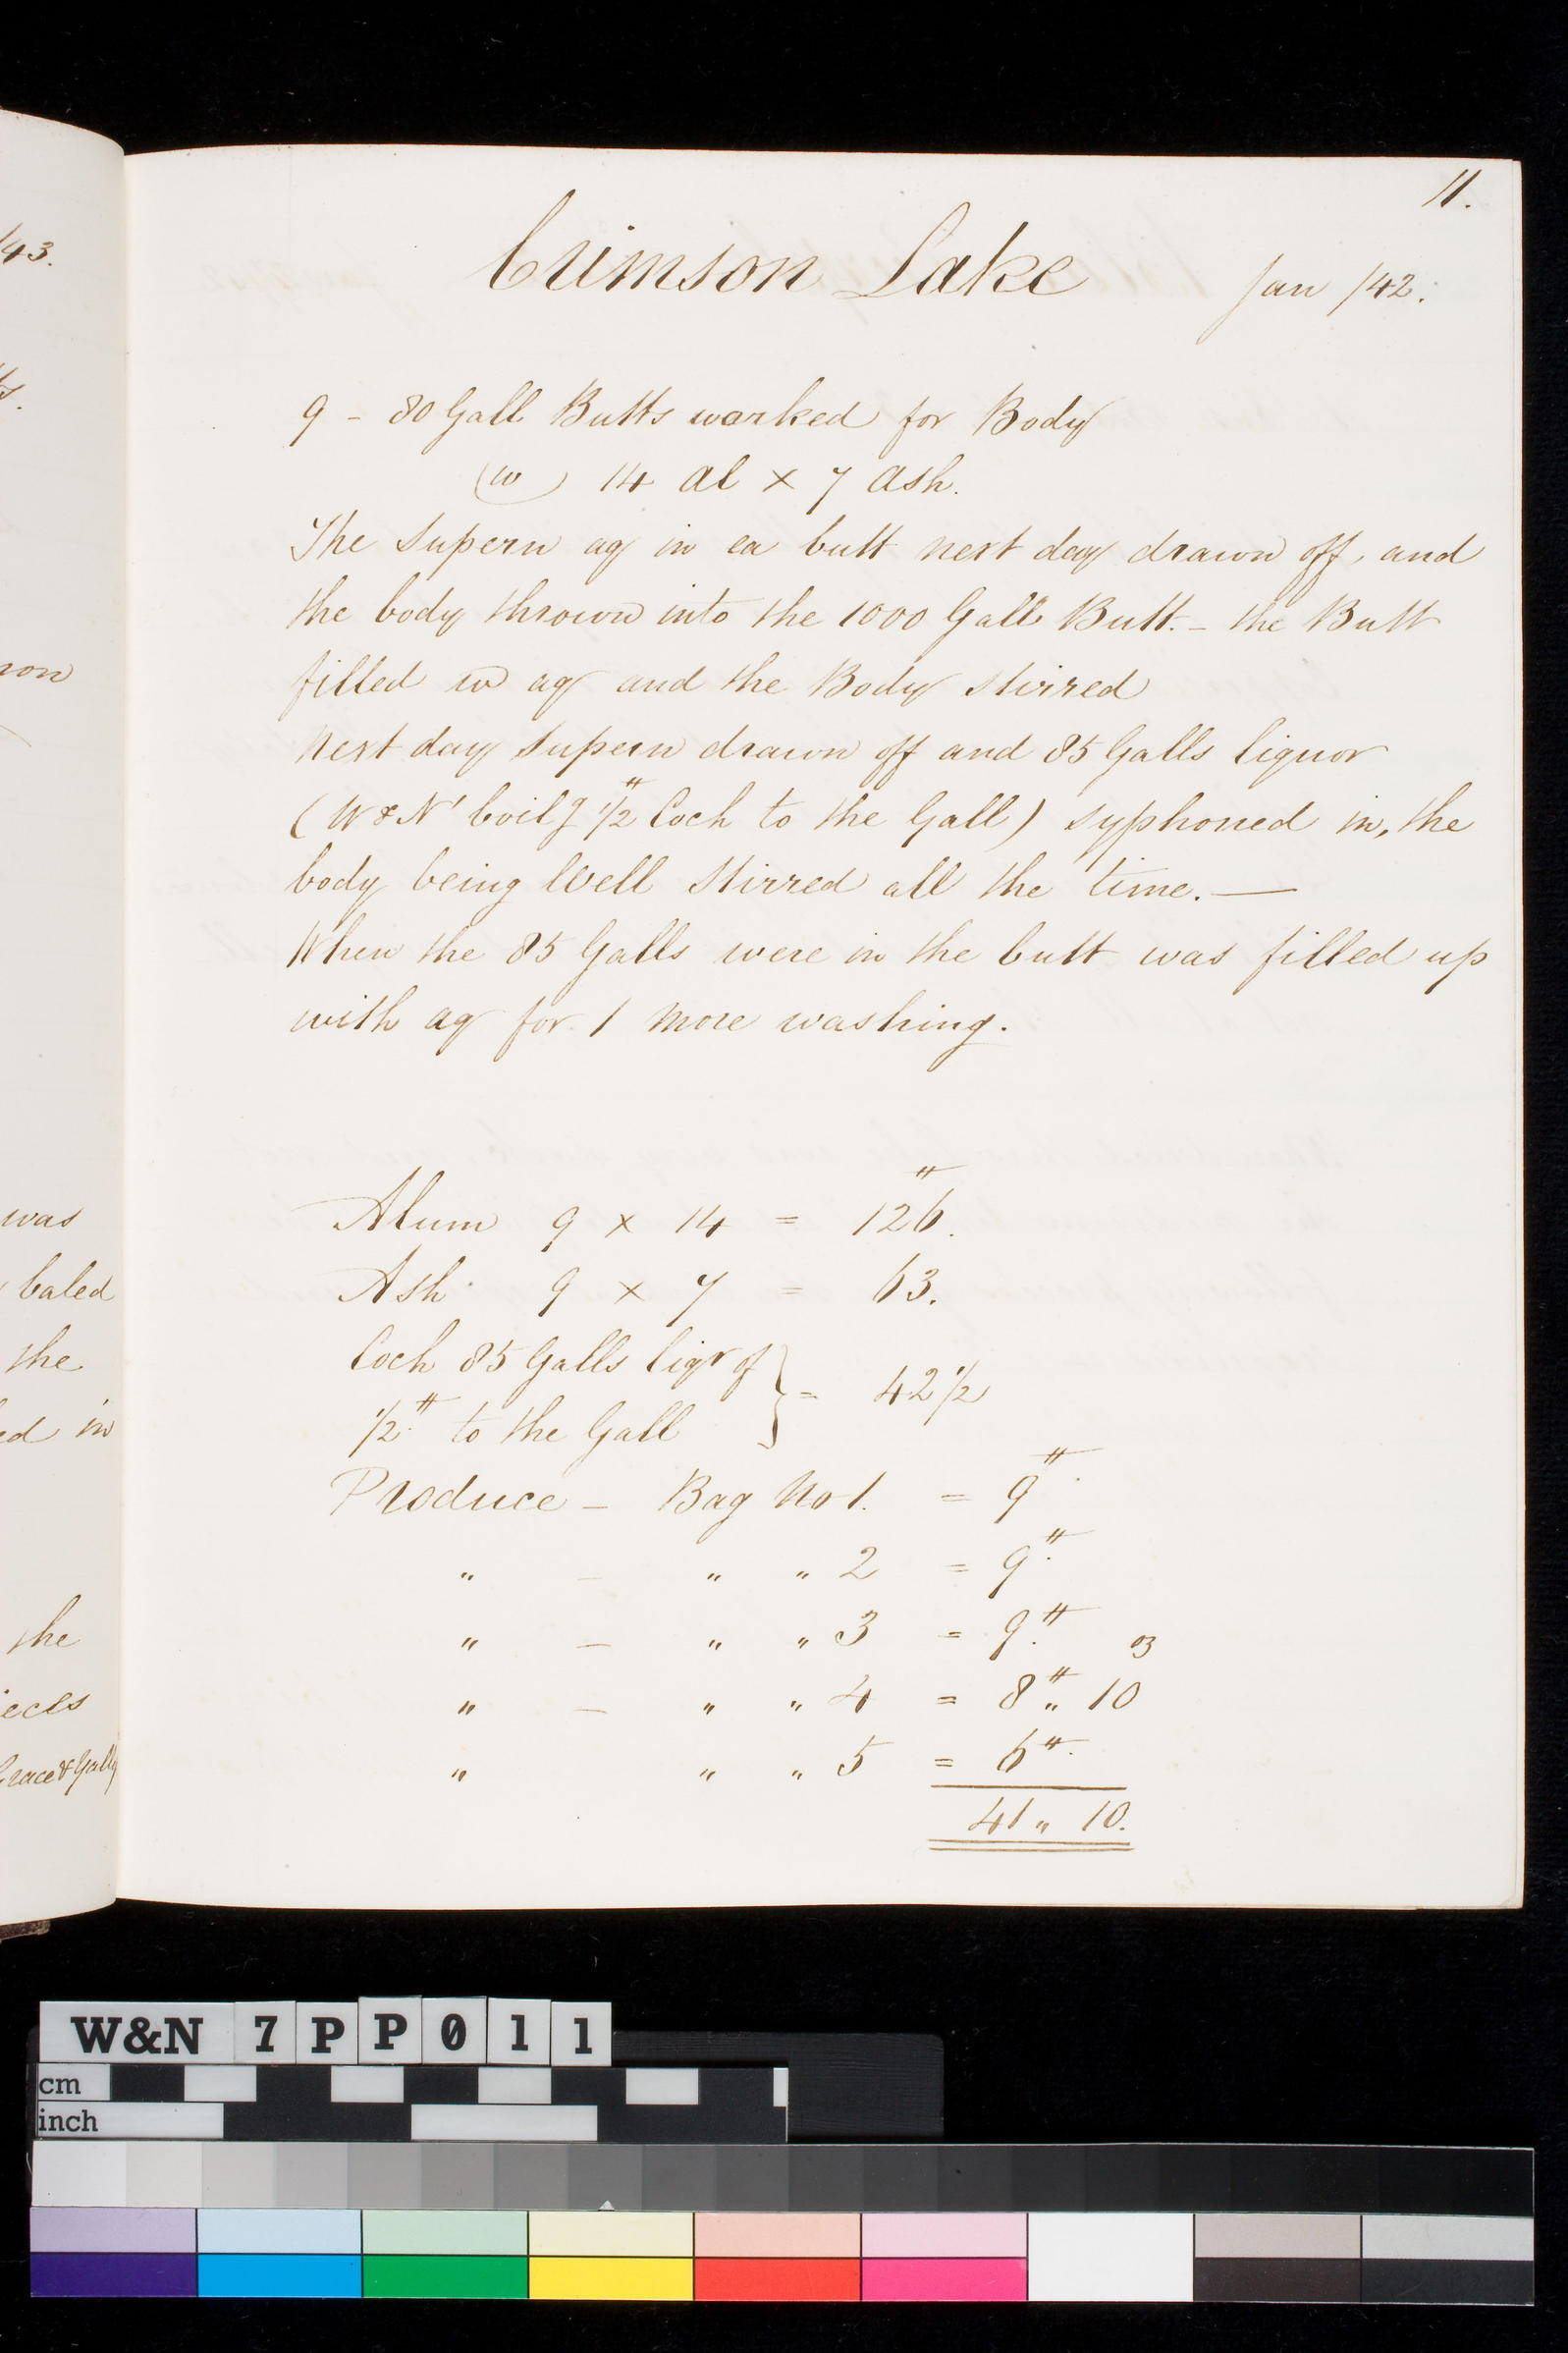 11.
Crimson Lake
Jan /42.
9 - 80 Gall Butts worked for Body
(w) 14 al x 7 ash.
The Supern aq in ea butt next day drawn off, and
the body thrown into the 1000 Gall Butt. - the Butt
filled w aq and the Body stirred
Next day Supern drawn off and 85 Galls liquor
(W & N' boilg ½ # Coch to the Gall) syphoned in, the
body being Well Stirred all the time. —
When the 85 Galls were in the butt was filled up
with aq for 1 more washing.
Alum 9 x 14 = 126. #
Ash 9 x 7 = 63.
Coch 85 Galls liqr of
½ # to the Gall } = 42½
Produce - Bag No 1. = 9 #
" - " " 2 = 9 #
" - " " 3 = 9 # oz
" - " " 4 = 8 # " 10
" " " 5 = 6 #
41 " 10.
/43.
was
baled
the
in
the
Grace & Gally
W&N 7PP011
cm
inch